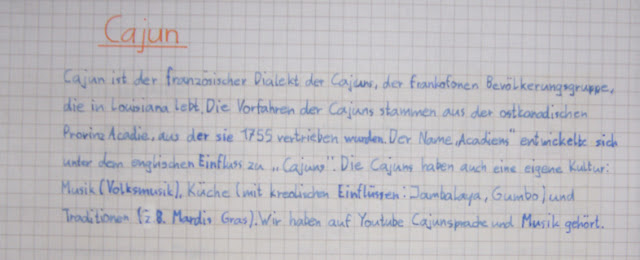 Cajun
Cajun ist der französischer Dialekt der Cajuns, der frankofonen Bevölkerungsgruppe,
die in Louisiana lebt. Die Vorfahren der Cajuns stammen aus der ostkanadischen
Provinz Acadie, aus der sie 1755 vertrieben wurden. Der Name „Acadiens" entwickelte sich
unter dem englischen Einfluss zu „Cajuns". Die Cajuns haben auch eine eigene Kultur:
Musik (Volksmusik), Küche (mit kreolischen Einflüssen: Jambalaya, Gumbo) und
Traditionen (z.B. Mardis Gras). Wir haben auf Youtube Cajunsprache und Musik gehört.